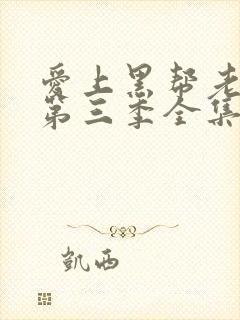 爱上黑帮老
第三季全集
凯西